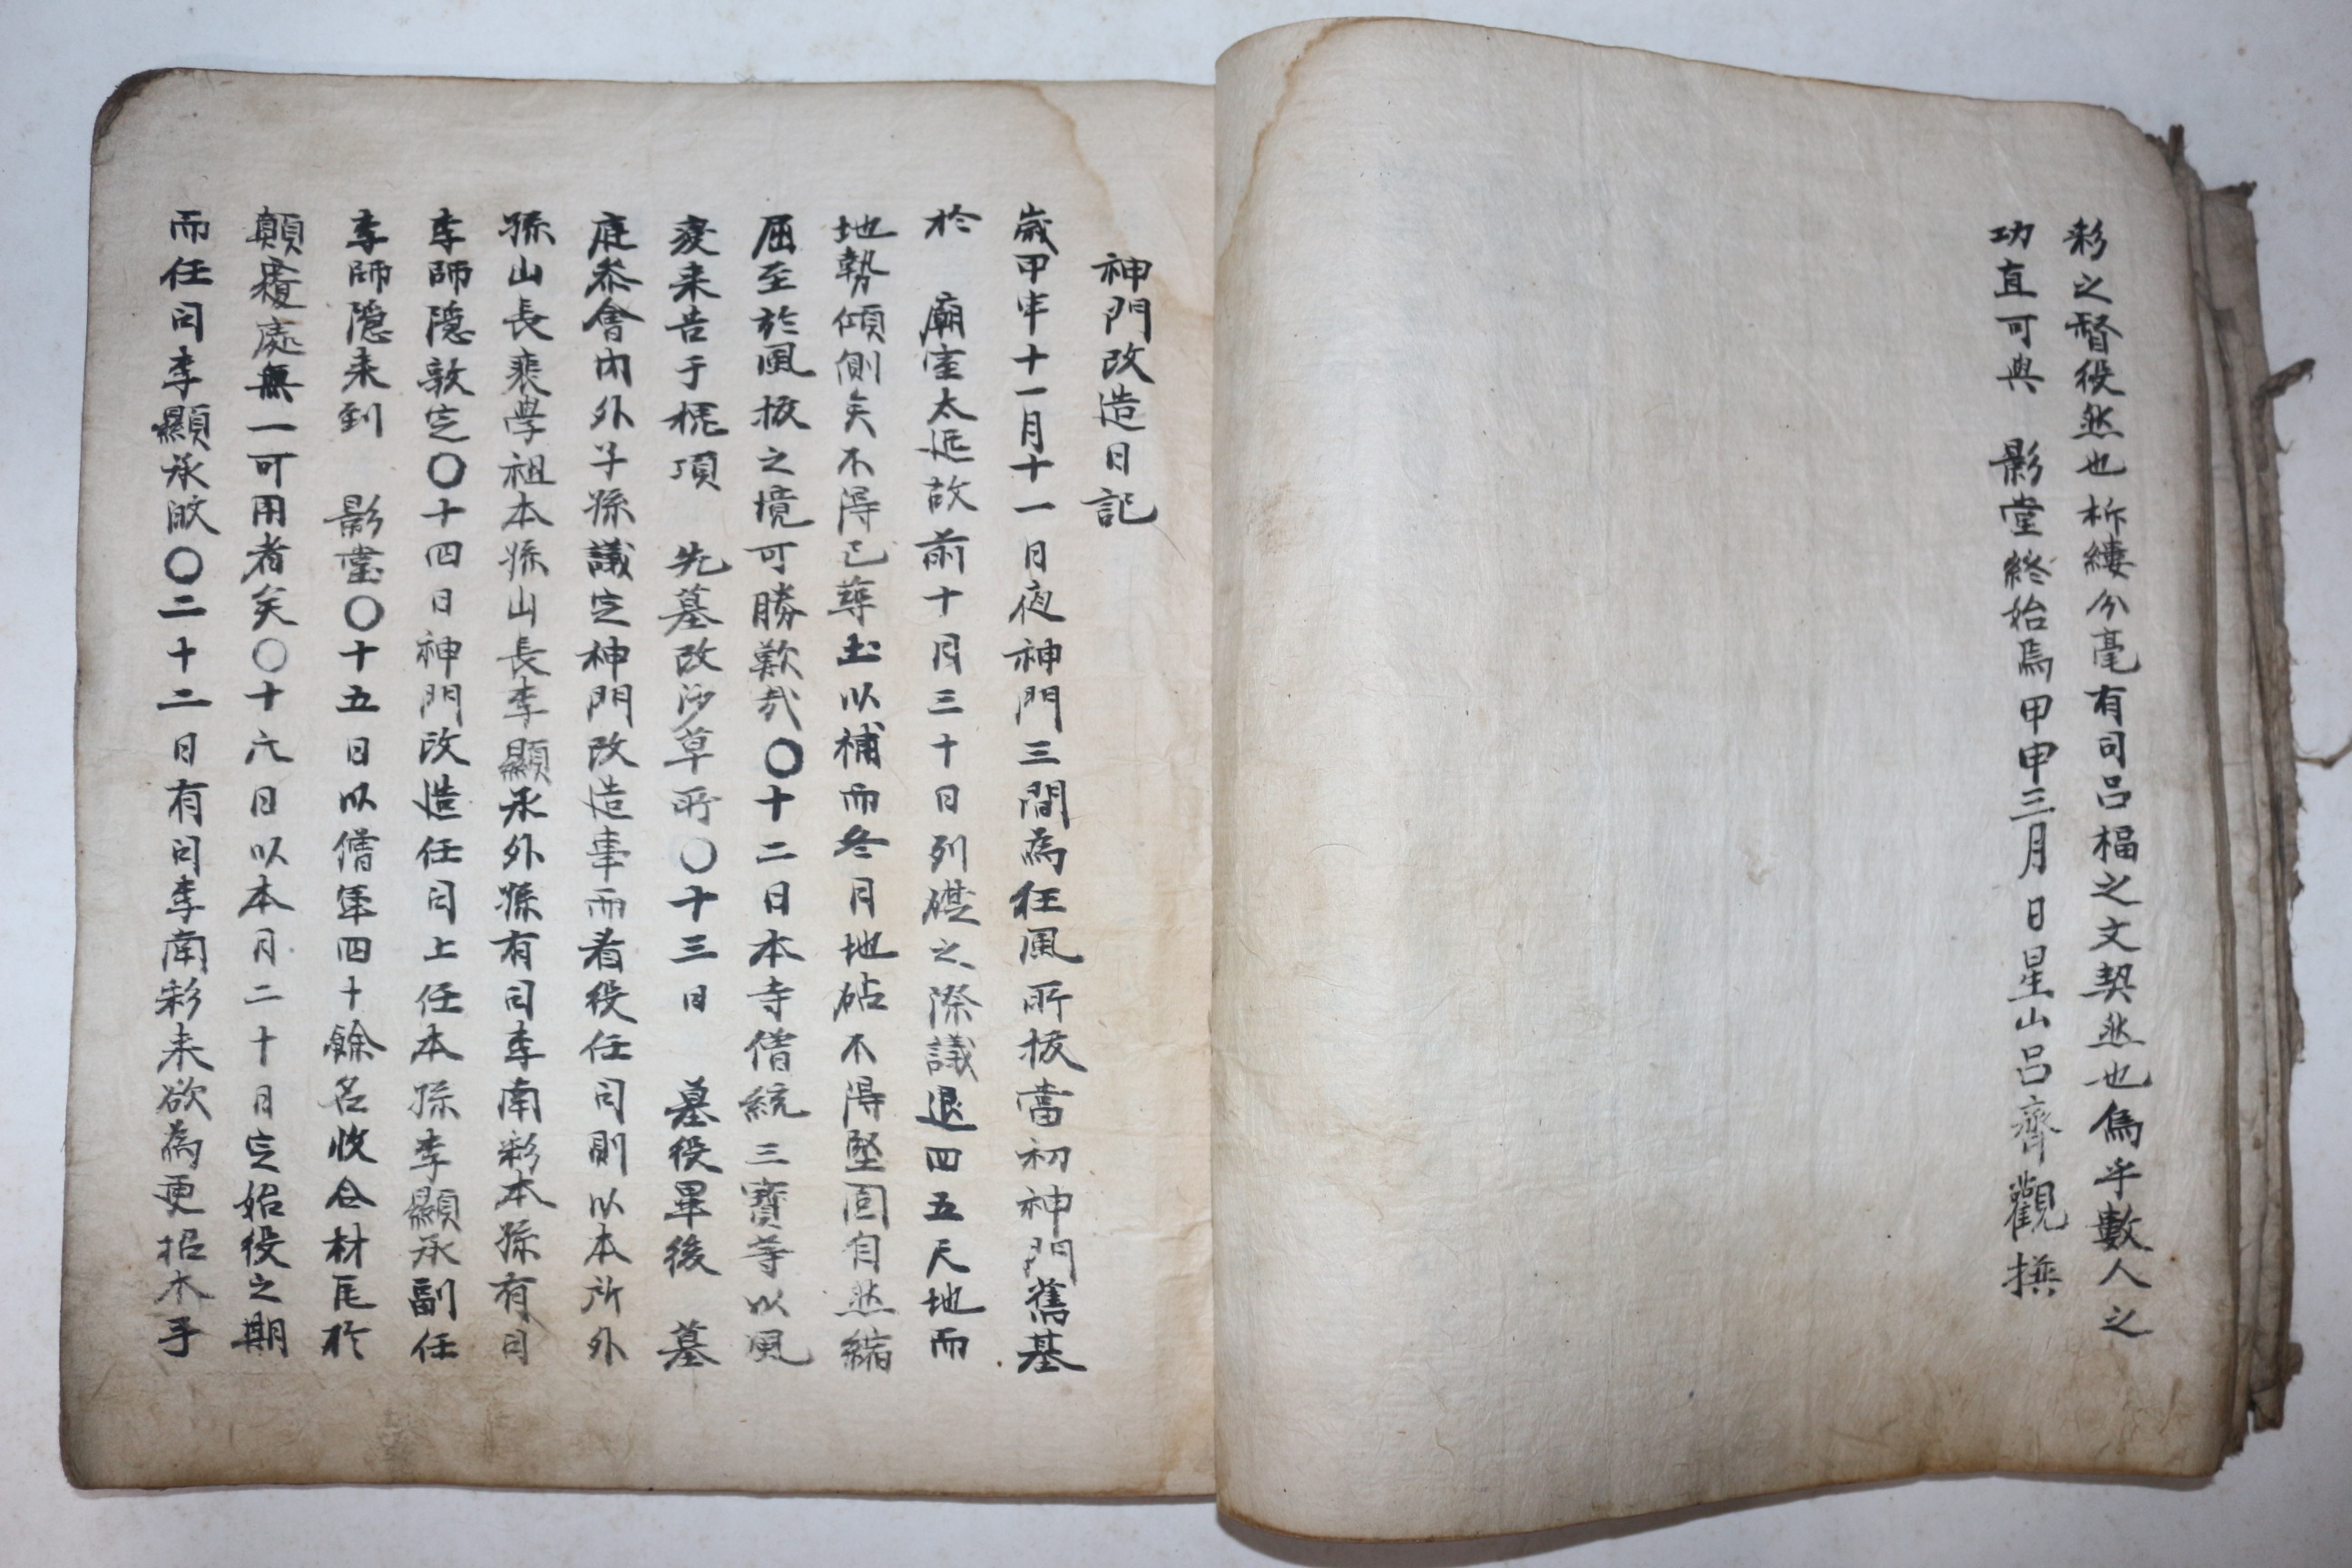 彩之督役然也析縷分毫有司呂楅之文契然也僞乎數人之
功直可與　影堂終始焉甲申三月　日星山呂齊觀撰
神門改造日記
歲甲午十一月十一日夜神門三間為狂風所拔當初神門舊基
於　廟室太近故前十月三十日列礎之際議退四五尺地而
地勢傾側矣不得已築土以補而冬月地砧不得堅固自然縮
屈至於風拔之境可勝歎哉〇十二日本寺僧統三寶等以風
變来告于桃項　先墓改沙草所〇十三日　墓役畢後　墓
庭叅會內外子孫議定神門改造事而着役任司則以本所外
孫山長裴學祖本孫山長李顯承外孫有司李南彩本孫有司
李師隱敦定〇十四日神門改造任司上任本孫李顯承副任
李師隱来到　影堂〇十五日以僧軍四十餘名收合材瓦於
顚覆處無一可用者矣〇十六日以本月二十日定始役之期
而任司李顯承皈〇二十二日有司李南彩来欲為更招木手